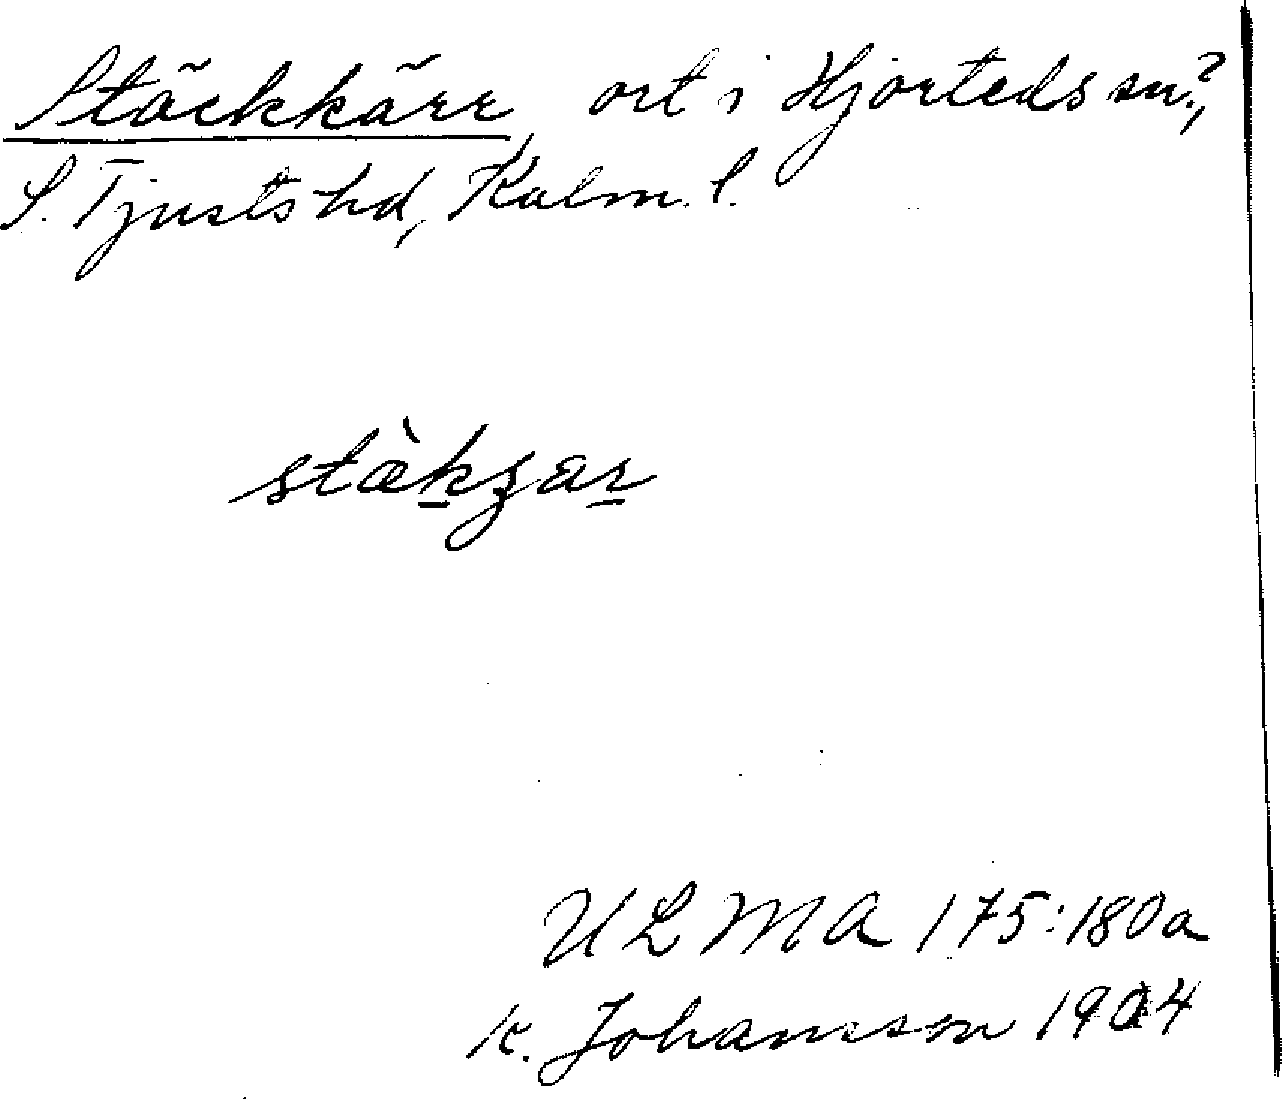 Stäckkärr, ort i Hjorteds sn?,
S. Tjusts hd, Kalm. l.
stàkʒar
ULMA 175:180a
K. Johansson 1904